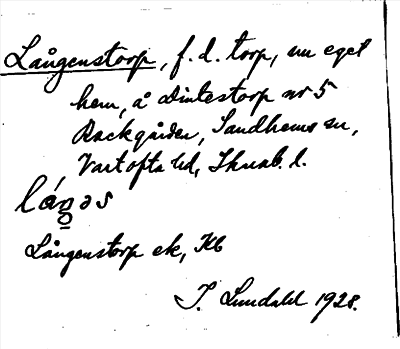 Långenstorp, f. d. torp, nu eget
hem, å Dintestorp nr 5
Backgården, Sandhems sn,
Vartofta hd, Skarab. l.
lángəs
Långenstorp ek, Kb
I. Lundahl 1928.